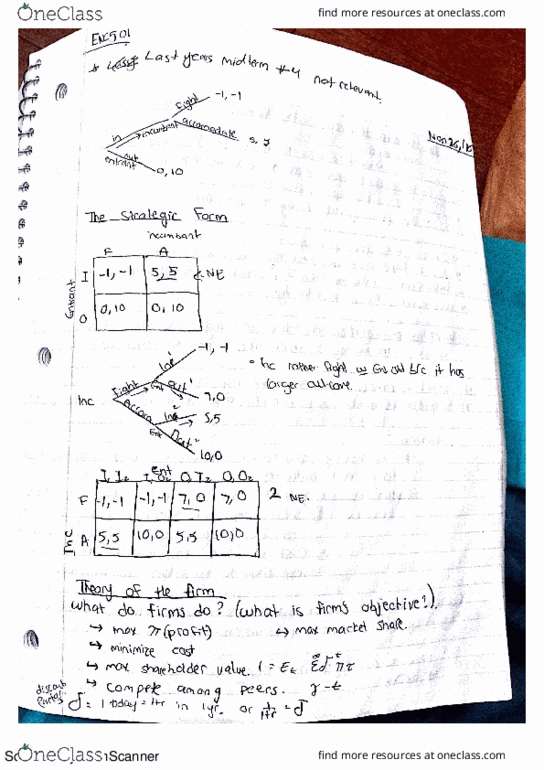 OneClass
find more resources at oneclass.com
ENC501
Last years midterm #4 not relevant.
Nov 26/15
Fight -1, -1
in
incumbant
accomodate 5, 5
out
entrant
0, 10
The Strategic Form
incumbant
F A
Entrant
I -1, -1 5, 5 NE
O 0, 10 0, 10
-1, -1
Fight
Ent
out'
7, 0
Inc
Accom
5, 5
Ent
10, 0
Inc rather fight w Ent out b/c it has
larger outcome.
Ent
I, I₂ I, O₂ O, I₂ O, O₂
Inc
F -1, -1 -1, -1 7, 0 7, 0 2 NE.
A 5, 5 10, 0 5, 5 10, 0
Theory of the firm
What do firms do? (What is firms objective?).
→ max π (profit) → max market share.
→ minimize cost
→ max shareholder value.
→ compete among peers.
discount
1 today = 1+r in 1yr. or 1/1+r = δ
Scanner
OneClass
find more resources at oneclass.com